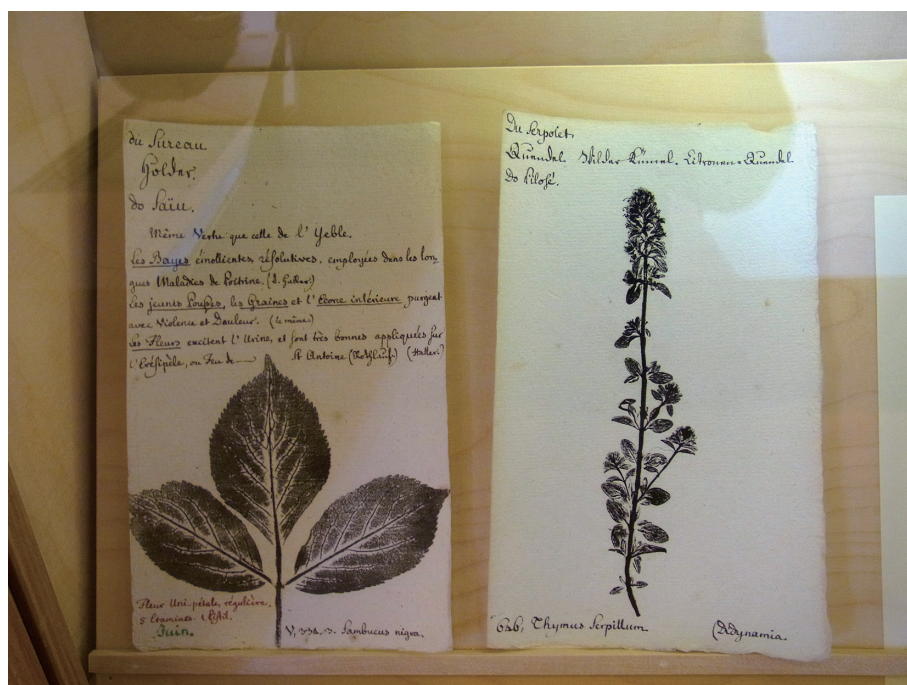 du Sureau
Holder.
do Saïu.
Même Vertu que celle de l'Yeble.
Les Bayes émollientes, résolutives, employées dans les lon-
gues Maladies de Poitrine. (d. Haller.)
Les jeunes Pousses, les Graines et l'Ecorce intérieure purgent
avec Violence et Douleur. (le même)
Les Fleurs excitent l'Urine, et sont très bonnes appliquées sur
l'Erésipèle, ou Feu de St Antoine (Rothlauf.) (Haller.)
Fleur Uni-pétale, régulière.
5 Etamines. 1 Pistil.
Juin.
V, 334, 3. Sambucus nigra.
Du Serpolet
Quendel. Wilder Kümel. Citronen=Quendel
Do Pilosé.
646, Thymus Serpillum
Didynamia.